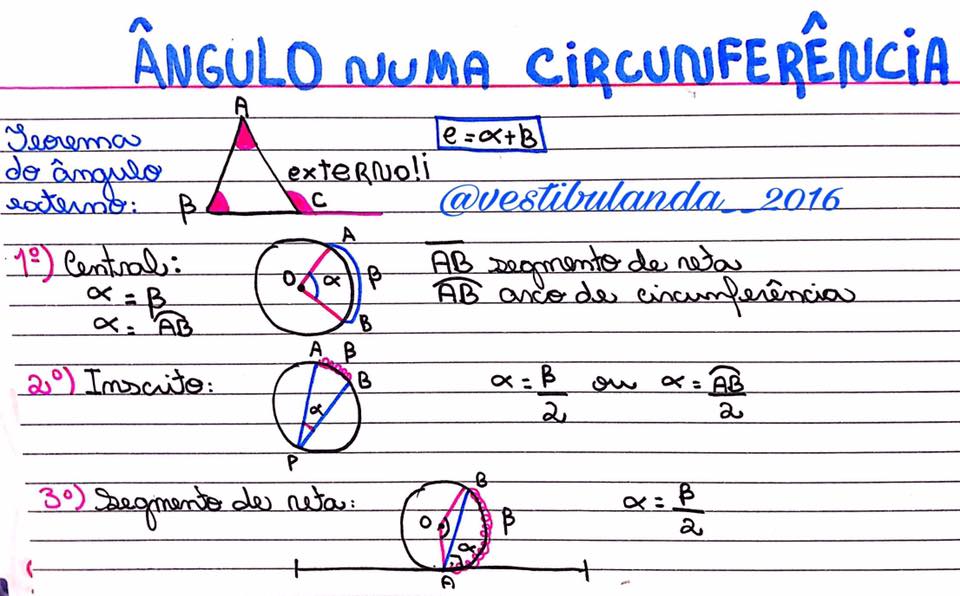 ÂNGULO NUMA CIRCUNFERÊNCIA
Teorema
do ângulo
externo:
A
B
C
externo!i
e = α + B
@vestibulanda__2016
1º) Central:
α = β
α = A͡B
O
A
α
β
B
A̅B̅ segmento de reta
A͡B arco de circunferência
2º) Inscrito:
A
β
B
α
P
α = β/2 ou α = A͡B/2
3º) Segmento de reta:
B
O
β
α
A
α = β/2